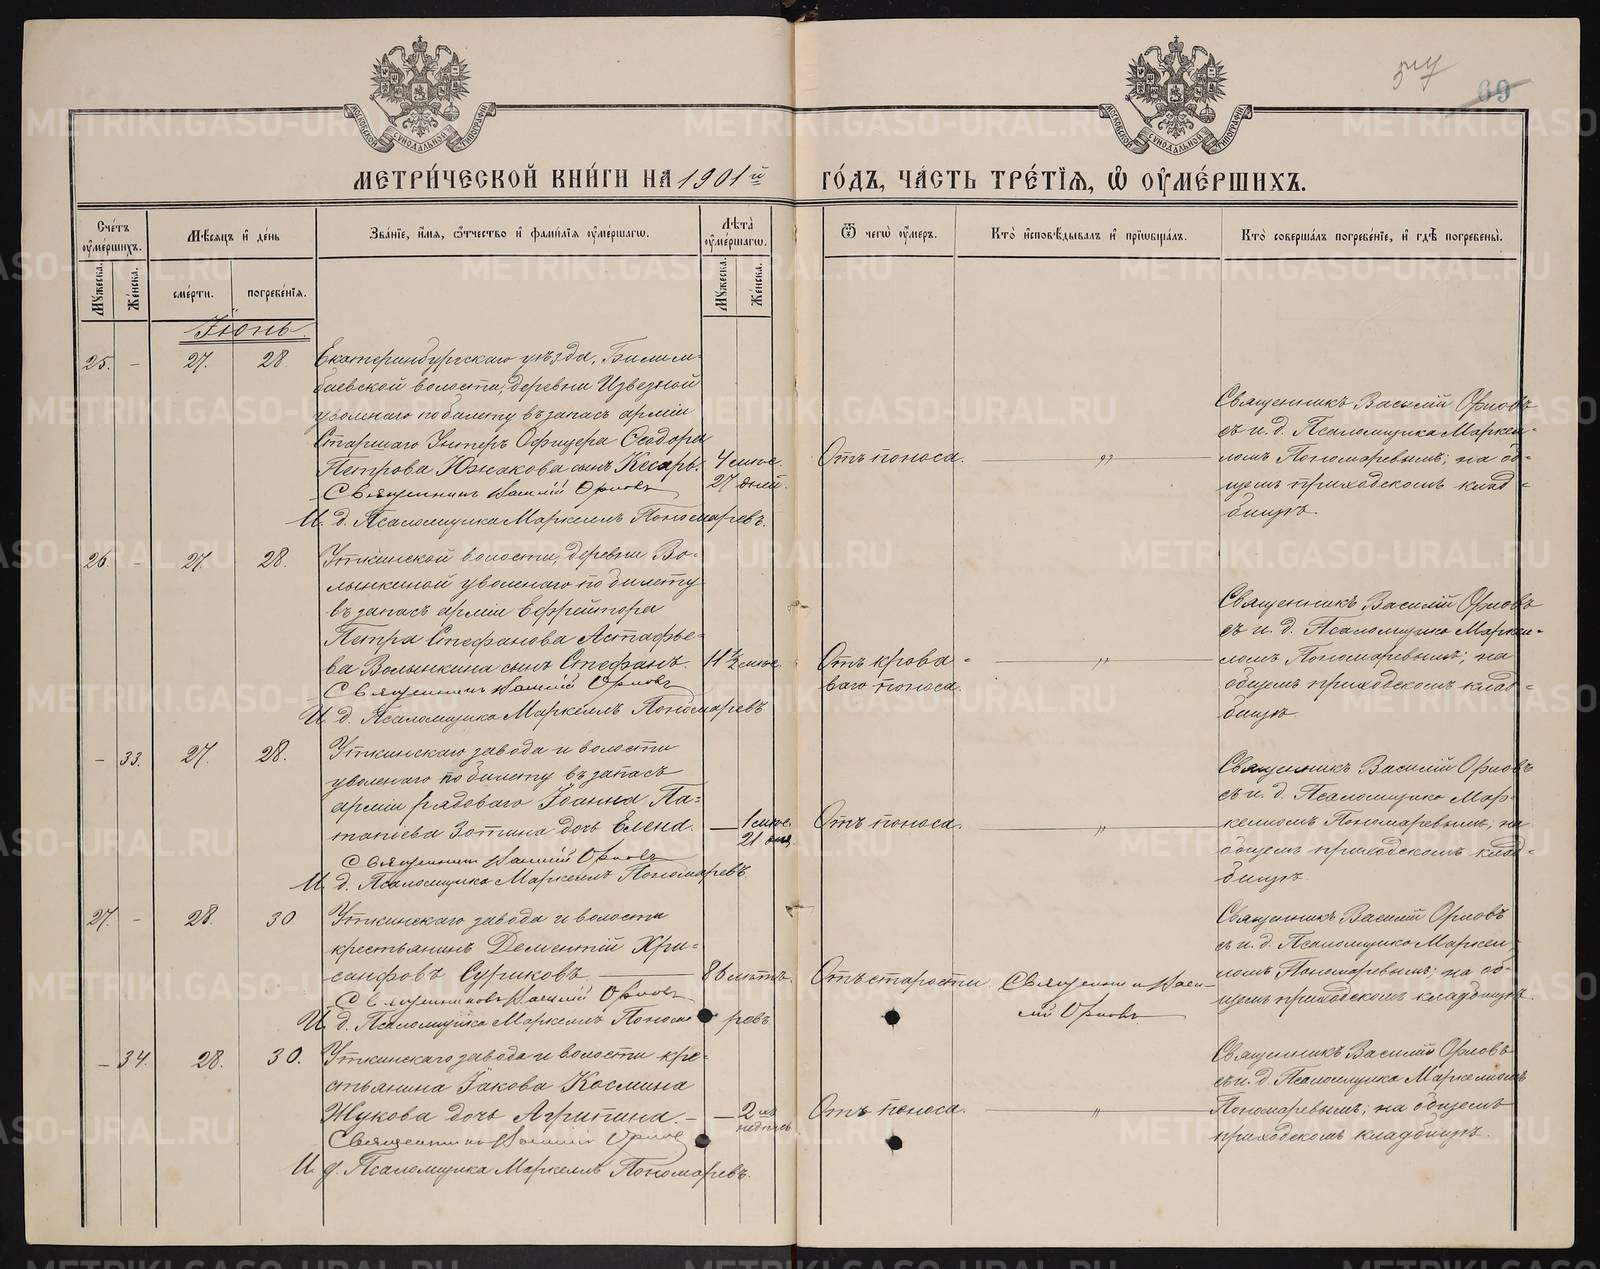 МОСКОВСКОЙ СУНОДАЛЬНОЙ ТИПОГРАФІИ
МОСКОВСКОЙ СУНОДАЛЬНОЙ ТИПОГРАФІИ
69
МЕТРИ́ЧЕСКОЙ КНИ́ГИ НА 1901й ГО́ДЪ, ЧА́СТЬ ТРЕ́ТІѦ, Ѡ҆ ОУ҆МЕ́РШИХЪ.
Сче́тъ оу҆ме́ршихъ.
Мꙋ́жеска.
Же́нска.
Мѣ́сѧцъ и҆ де́нь
сме́рти.
погребе́нїѧ.
Зва́нїе, и҆́мѧ, ѻ҆́тчество и҆ фами́лїѧ оу҆ме́ршагѡ.
Лѣ́та оу҆ме́ршагѡ.
Мꙋ́жеска.
Же́нска.
Ѿ чегѡ̀ оу҆́меръ.
Кто̀ и҆сповѣ́дывалъ и҆ прїѡбща́лъ.
Кто̀ соверша́лъ погребе́нїе, и҆ гдѣ̀ погребены̀.
Іюнь
25. - 27. 28.
Екатеринбургскаго уѣзда, Билим-
баевской волости, деревни Извезной
уволеннаго по билету въ запасъ арміи
Старшаго Унтеръ Офицера Ѳеодора
Петрова Южакова сынъ Кесарь.
4 мѣс.
27 дней.
Отъ поноса. „
Священникъ Василій Орловъ
И. д. Псаломщика Маркеллъ Пономаревъ.
Священникъ Василій Орловъ
съ и. д. Псаломщика Маркел-
ломъ Пономаревымъ; на об-
щемъ приходскомъ клад-
бищѣ.
26. - 27. 28.
Уткинской волости, деревни Во-
лынкиной уволеннаго по билету
въ запасъ арміи Ефрейтора
Петра Стефанова Астафье-
ва Волынкина сынъ Стефанъ.
11½ мѣс.
Отъ крова-
ваго поноса. „
Священникъ Василій Орловъ
И. д. Псаломщика Маркеллъ Пономаревъ
Священникъ Василій Орловъ
съ и. д. Псаломщика Маркел-
ломъ Пономаревымъ; на
общемъ приходскомъ клад-
бищѣ.
- 33. 27. 28.
Уткинскаго завода и волости
уволеннаго по билету въ запасъ
арміи рядоваго Іоанна Па-
тапіева Зотина дочь Елена.
— 1 мѣс.
21 дня
Отъ поноса. „
Священникъ Василій Орловъ
И. д. Псаломщика Маркеллъ Пономаревъ
Священникъ Василій Орловъ
съ и. д. Псаломщика Мар-
келломъ Пономаревымъ, на
общемъ приходскомъ клад-
бищѣ.
27. - 28. 30
Уткинскаго завода и волости
крестьянинъ Дементій Хри-
санфовъ Суриковъ
86 лѣтъ.
Отъ старости
Священникъ Васи-
лій Орловъ
Священникъ Василій Орловъ
И. д. Псаломщика Маркеллъ Пономаревъ
Священникъ Василій Орловъ
съ и. д. Псаломщика Маркел-
ломъ Пономаревымъ; на об-
щемъ приходскомъ кладбищѣ.
- 34. 28. 30.
Уткинскаго завода и волости кре-
стьянина Іакова Космина
Жукова дочь Агрипина.
— 2
Отъ поноса. „
Священникъ Василій Орловъ
И. д. Псаломщика Маркеллъ Пономаревъ.
Священникъ Василій Орловъ
съ и. д. Псаломщика Маркелломъ
Пономаревымъ; на общемъ
приходскомъ кладбищѣ.
METRIKI.GASO-URAL.RU